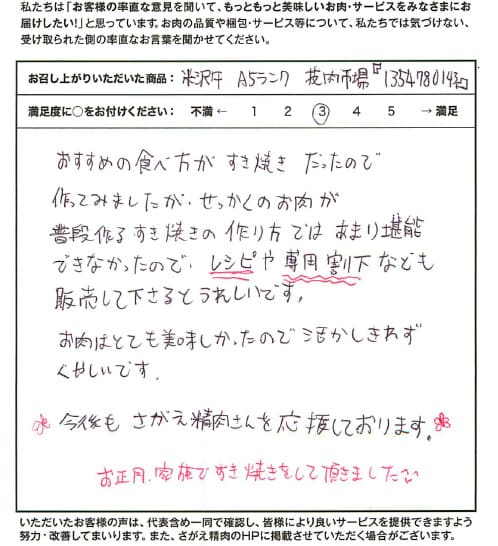 私たちは「お客様の率直な意見を聞いて、もっともっと美味しいお肉・サービスをみなさまにお
届けしたい！」と思っています。お肉の品質や梱包・サービス等について、私たちでは気づけない、
受け取られた側の率直なお言葉を聞かせてください。
お召し上がりいただいた商品： 米沢牛 A5ランク
満足度に○をお付けください： 不満 ← 1 2 3 4 5 → 満足
おすすめの食べ方が すき焼き だったので
作ってみましたが、せっかくのお肉が
普段作るすき焼きの作り方では あまり堪能
できなかったので、レシピや専用割下なども
販売して下さるとうれしいです。
お肉はとても美味しかったので活かしきれず
くやしいです.
今後も さがえ精肉さんを応援しております。
お正月、家族ですき焼きをして頂きました
いただいたお客様の声は、代表含め一同で確認し、皆様により良いサービスを提供できますよう
努力・改善してまいります。また、さがえ精肉のHPに掲載させていただく場合がございます。